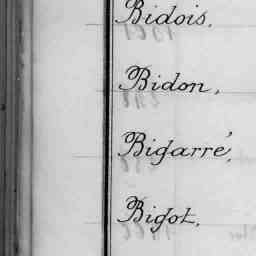 Bidois.
Bidon,
Bigarré,
Bigot.